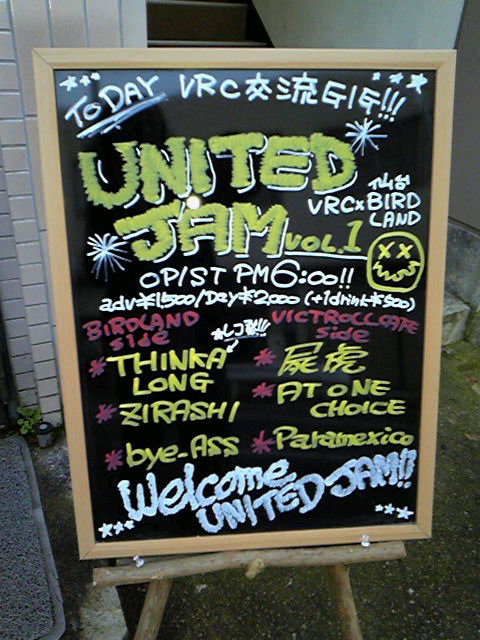 TODAY VRC交流GIG!!!
UNITED
JAM VOL.1
仙台
VRC×BIRD
LAND
OP/ST PM6:00!!
adv¥1,500/Day¥2,000 (+1drink¥500)
BIRDLAND
side
*レコ発!!!
VICTROLLCAFE
side
*THINKA
LONG
*ZIRASHI
*bye-Ass
*屍虎
*AT ONE
CHOICE
*Paramexico
Welcome
UNITED JAM!!